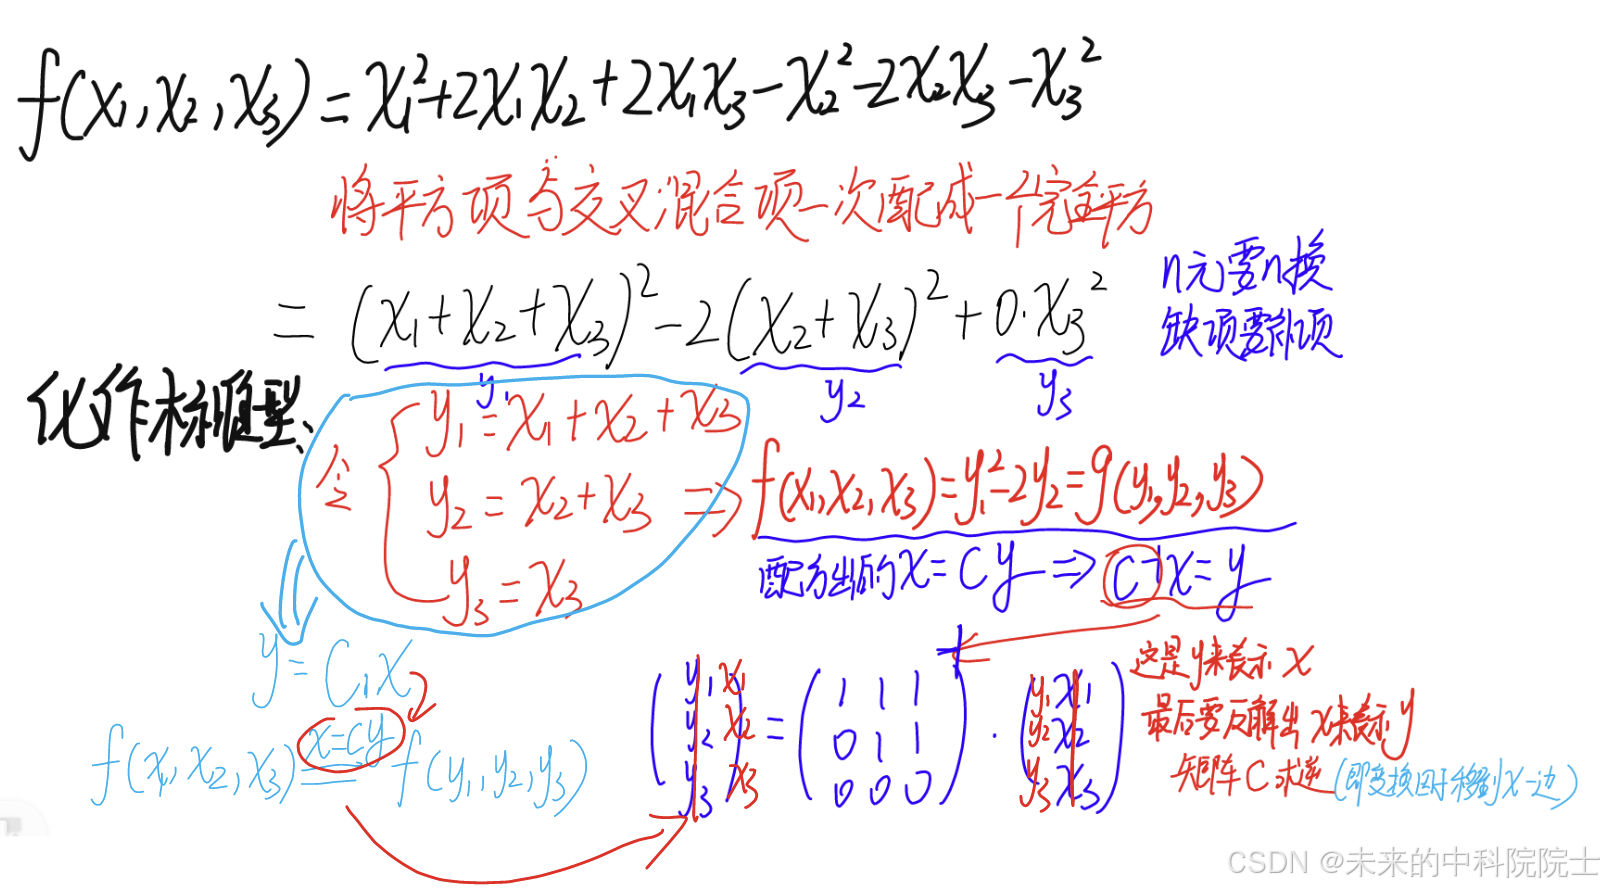 f(x₁,x₂,x₃)=x₁²+2x₁x₂+2x₁x₃-x₂²-2x₂x₃-x₃²
将平方项与交叉混合项一次配成一个完全平方
=(x₁+x₂+x₃)²-2(x₂+x₃)²+0·x₃²
n元要n换
缺项要补项
y₁ y₂ y₃
化作标准型:
令 { y₁=x₁+x₂+x₃
y₂=x₂+x₃
y₃=x₃
⇒ f(x₁,x₂,x₃)=y₁²-2y₂=g(y₁,y₂,y₃)
配方出的x=Cy ⇒ C⁻¹x=y
y=C₁x
f(x₁,x₂,x₃) x=Cy f(y₁,y₂,y₃)
y₁ x₁ = ( 1 1 1 ) · y₁ x₁
y₂ x₂ ( 0 1 1 ) y₂ x₂
y₃ x₃ ( 0 0 0 ) y₃ x₃
-1
这是y来表示x
最后要反解出x来表示y
矩阵C求逆(即变换因时移到x一边)
CSDN @未来的中科院院士